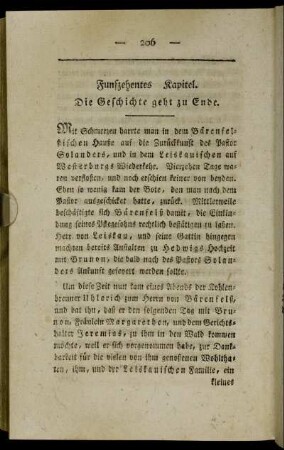 — 206 —
Funfzehentes Kapitel.
Die Geschichte geht zu Ende.
Mit Schmerzen harrte man in dem Bärenfel-
sischen Hause auf die Zurückkunft des Pastor
Solanders, und in dem Leiskauischen auf
Westerburgs Wiederkehr. Vierzehen Tage wa-
ren verflossen, und noch erschien keiner von beyden.
Eben so wenig kam der Bote, den man nach dem
Pastor ausgeschicket hatte, zurück. Mittlerweile
beschäftigte sich Bärenfels damit, die Einkin-
dung seines Pflegesohns rechtlich bestätigen zu lassen.
Herr von Leiskau, und seine Gattin hingegen
machten bereits Anstalten zu Hedwigs Hochzeit
mit Brunon, die bald nach des Pastors Solan-
ders Ankunft gefeyert werden sollte.
Um diese Zeit nun kam eines Abends der Kohlen-
brenner Uhlerich zum Herrn von Bärenfels,
und bat ihn, daß er den folgenden Tag mit Bru-
non, Fräulein Margarethen, und dem Gerichts-
halter Jeremias, zu ihm in den Wald kommen
möchte, weil er sich vorgenommen habe, zur Dank-
barkeit für die vielen von ihm genossenen Wohltha-
ten, ihm, und der Leiskauischen Familie, ein
kleines